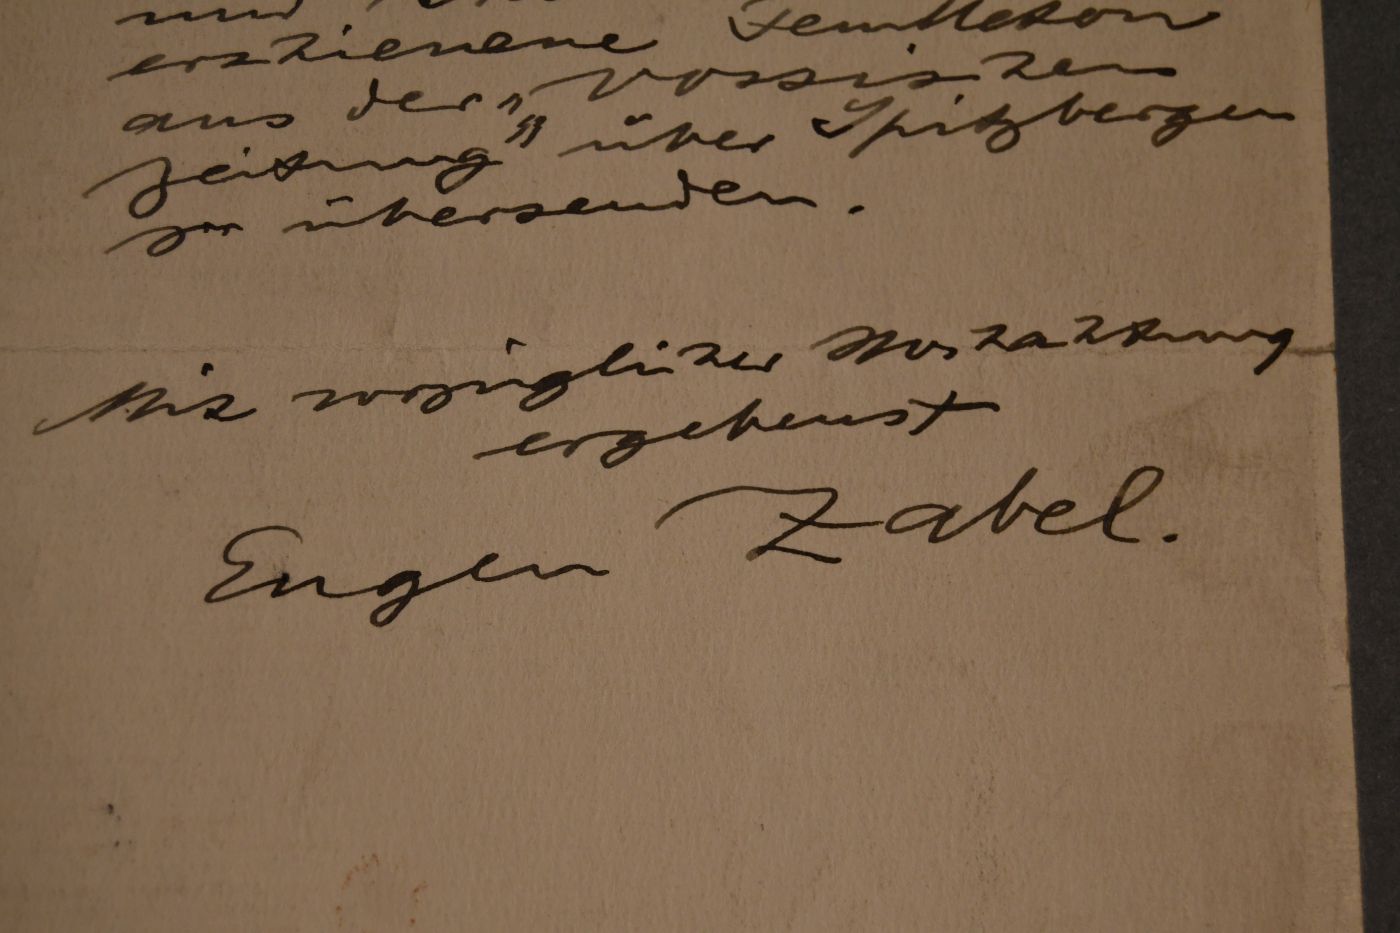 und
erschienene Feuilleton
aus der „Vossischen
Zeitung" über Spitzbergen
zu übersenden.
Mit vorzüglicher Hochachtung
ergebenst
Eugen Zabel.